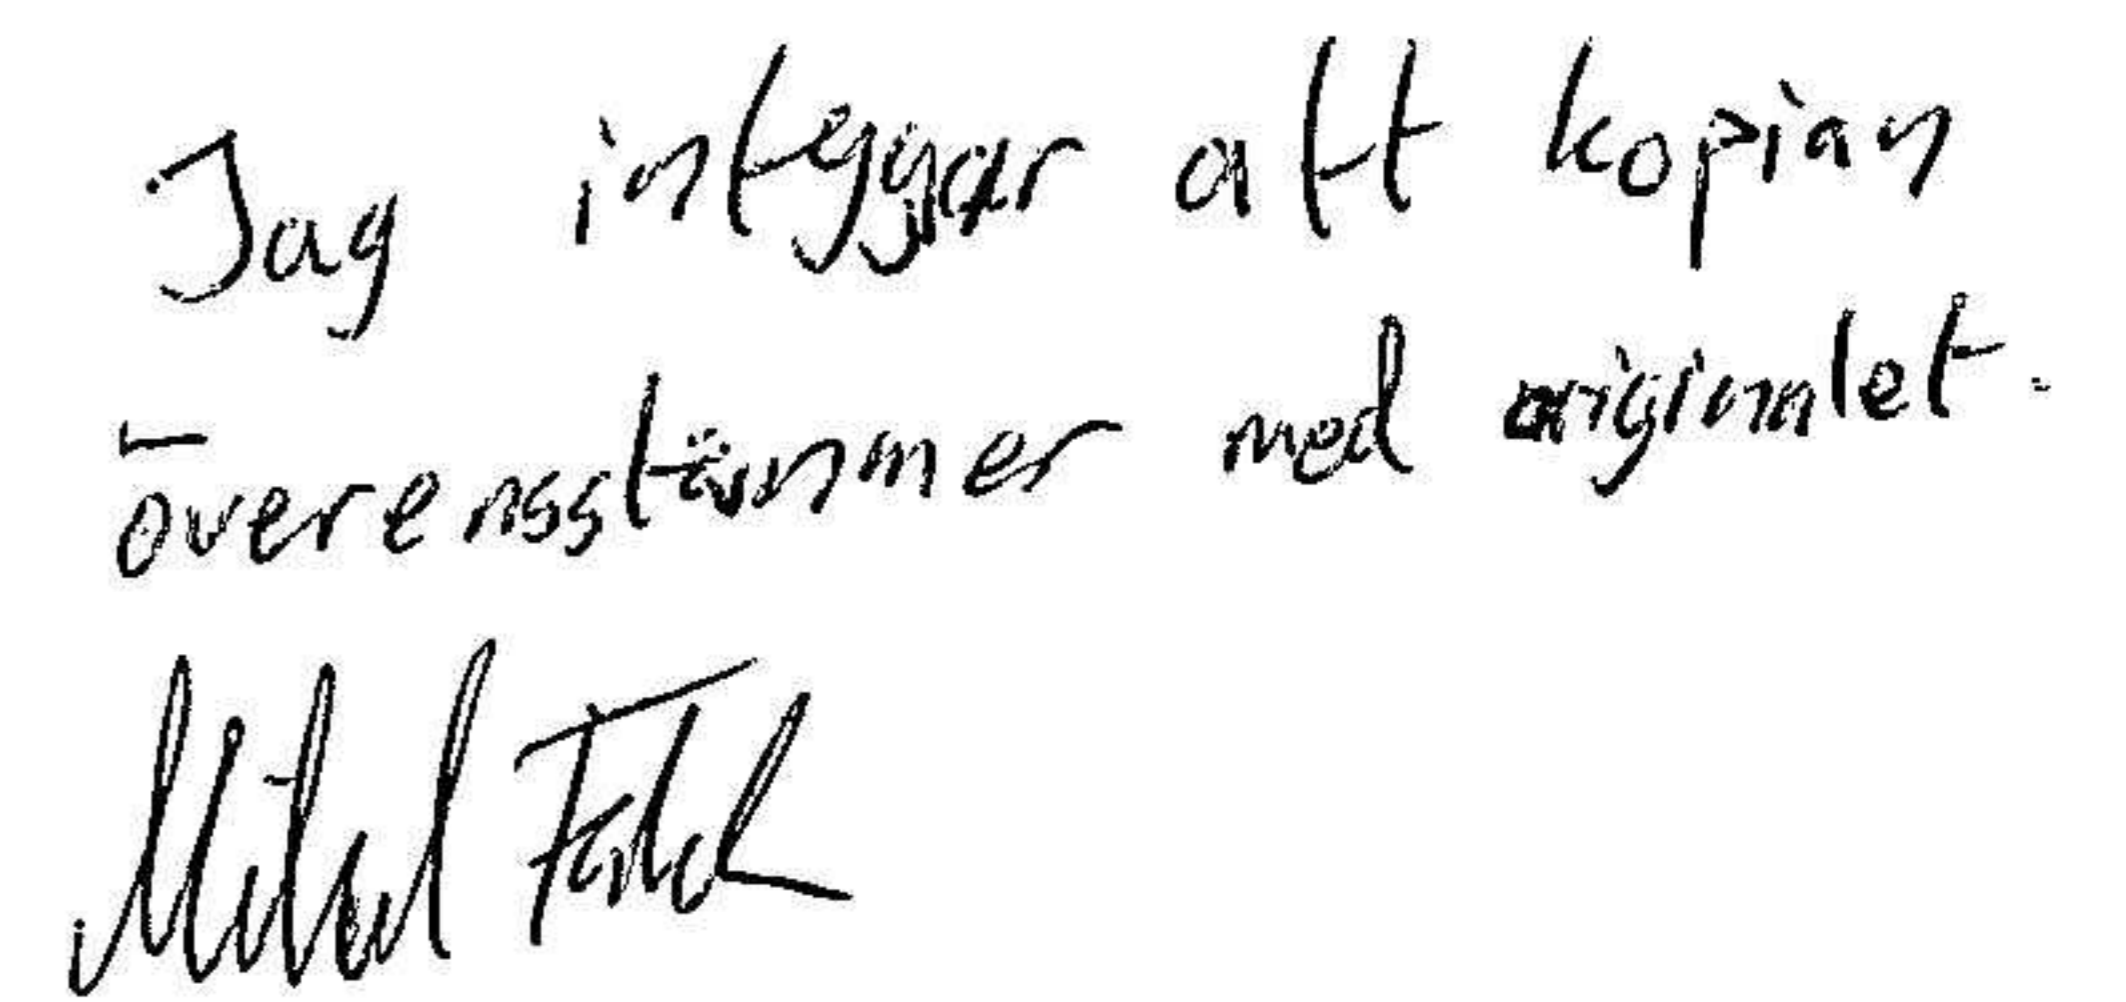 Jag inteygar att kopian
överensstämmer med originalet.
Mikael Falck